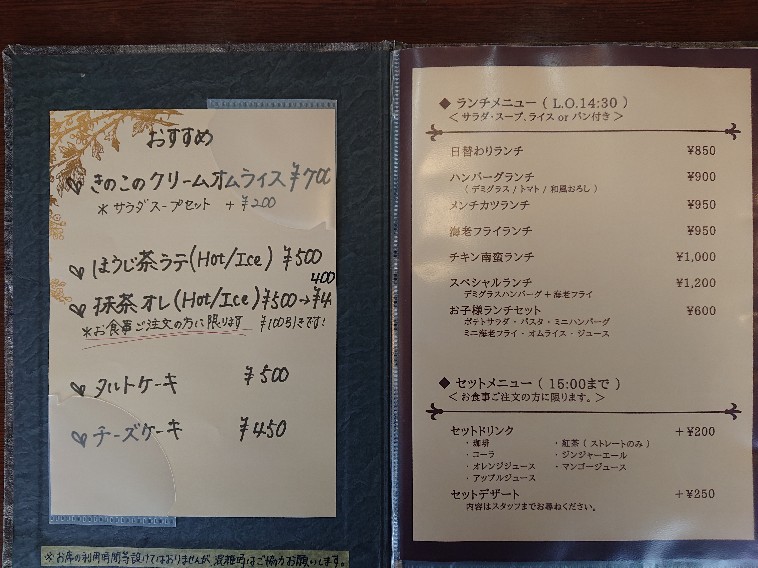 おすすめ
きのこのクリームオムライス ¥700
＊サラダスープセット +¥200
ほうじ茶ラテ(Hot/Ice) ¥500
400
抹茶オレ(Hot/Ice) ¥500→¥4
＊お食事ご注文の方に限ります ¥100引きです!
タルトケーキ ¥500
チーズケーキ ¥450
※お席の利用時間等設けてはおりませんが、混雑時はご協力お願いします。
◆ ランチメニュー ( L.O.14:30 )
＜ サラダ・スープ、ライス or パン付き ＞
日替わりランチ ¥850
ハンバーグランチ ¥900
( デミグラス / トマト / 和風おろし )
メンチカツランチ ¥950
海老フライランチ ¥950
チキン南蛮ランチ ¥1,000
スペシャルランチ ¥1,200
デミグラスハンバーグ + 海老フライ
お子様ランチセット ¥600
ポテトサラダ・パスタ・ミニハンバーグ
ミニ海老フライ・オムライス・ジュース
◆ セットメニュー ( 15:00まで )
＜ お食事ご注文の方に限ります。＞
セットドリンク +¥200
・珈琲 ・紅茶 ( ストレートのみ )
・コーラ ・ジンジャーエール
・オレンジジュース ・マンゴージュース
・アップルジュース
セットデザート +¥250
内容はスタッフまでお尋ねください。